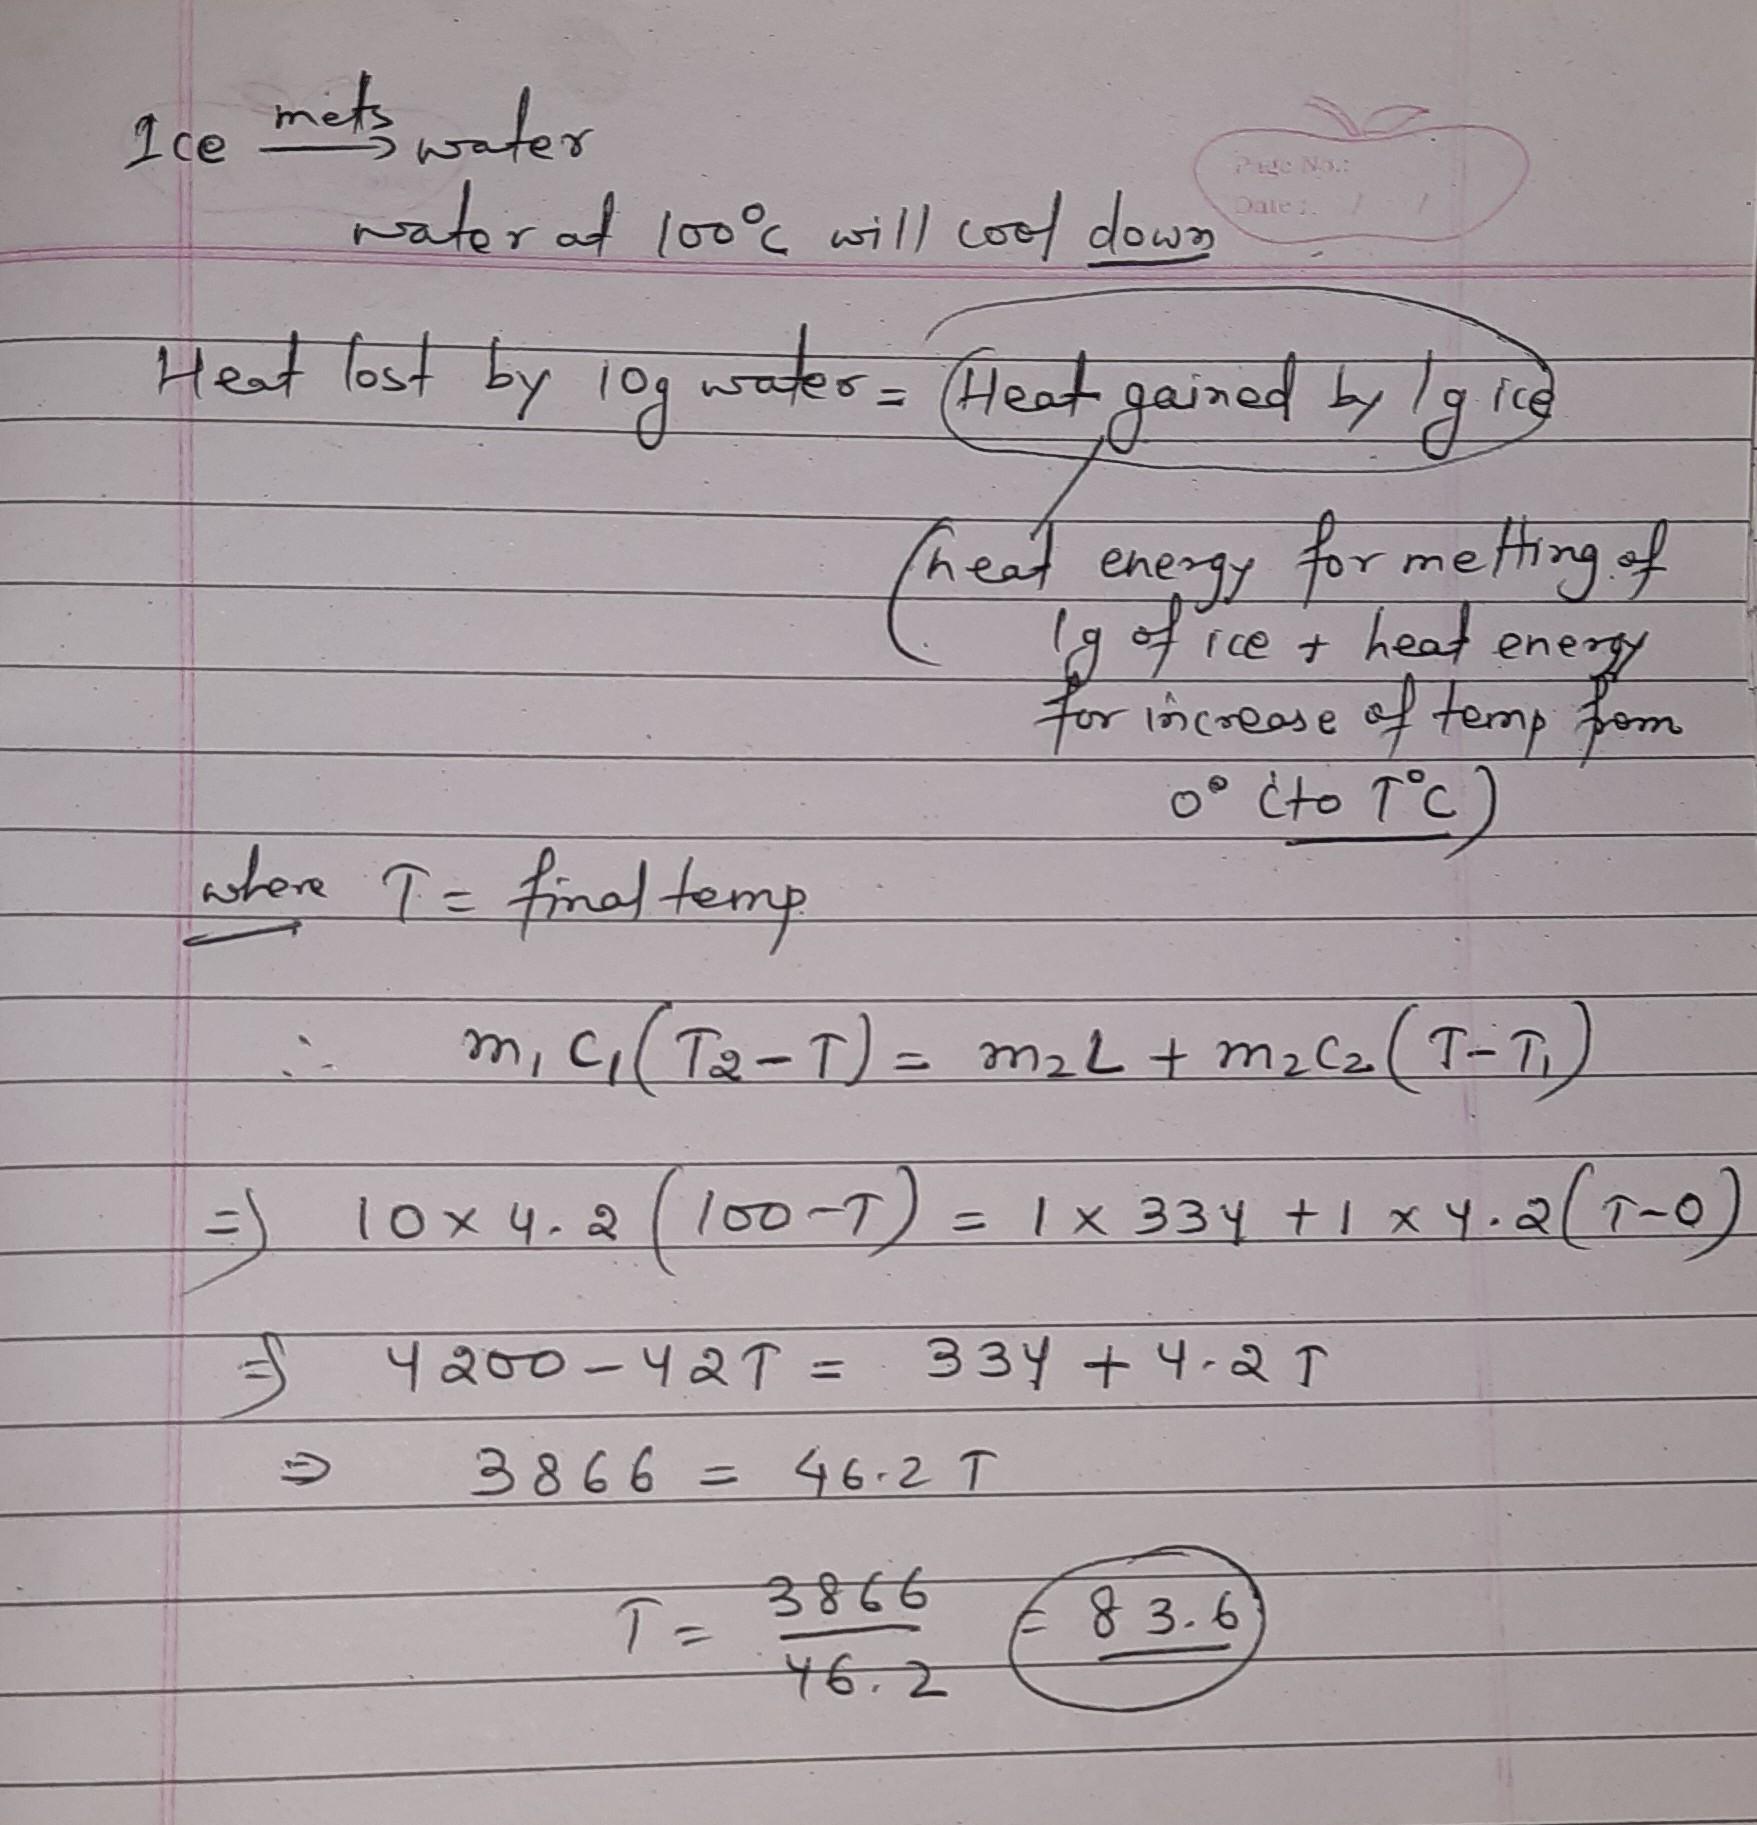 Ice mets→ water
Page No.:
Date: / /
water at 100°c will cool down
Heat lost by 10g water = (Heat gained by 1g ice)
(heat energy for melting of
1g of ice + heat energy
for increase of temp from
0° (to T°C)
where T = final temp.
∴ m₁ C₁ (T₂ - T) = m₂L + m₂C₂ (T - T₁)
⇒ 10 × 4.2 (100 - T) = 1 × 334 + 1 × 4.2 (T - 0)
⇒ 4200 - 42T = 334 + 4.2 T
⇒ 3866 = 46.2 T
T = 3866/46.2 = 83.6